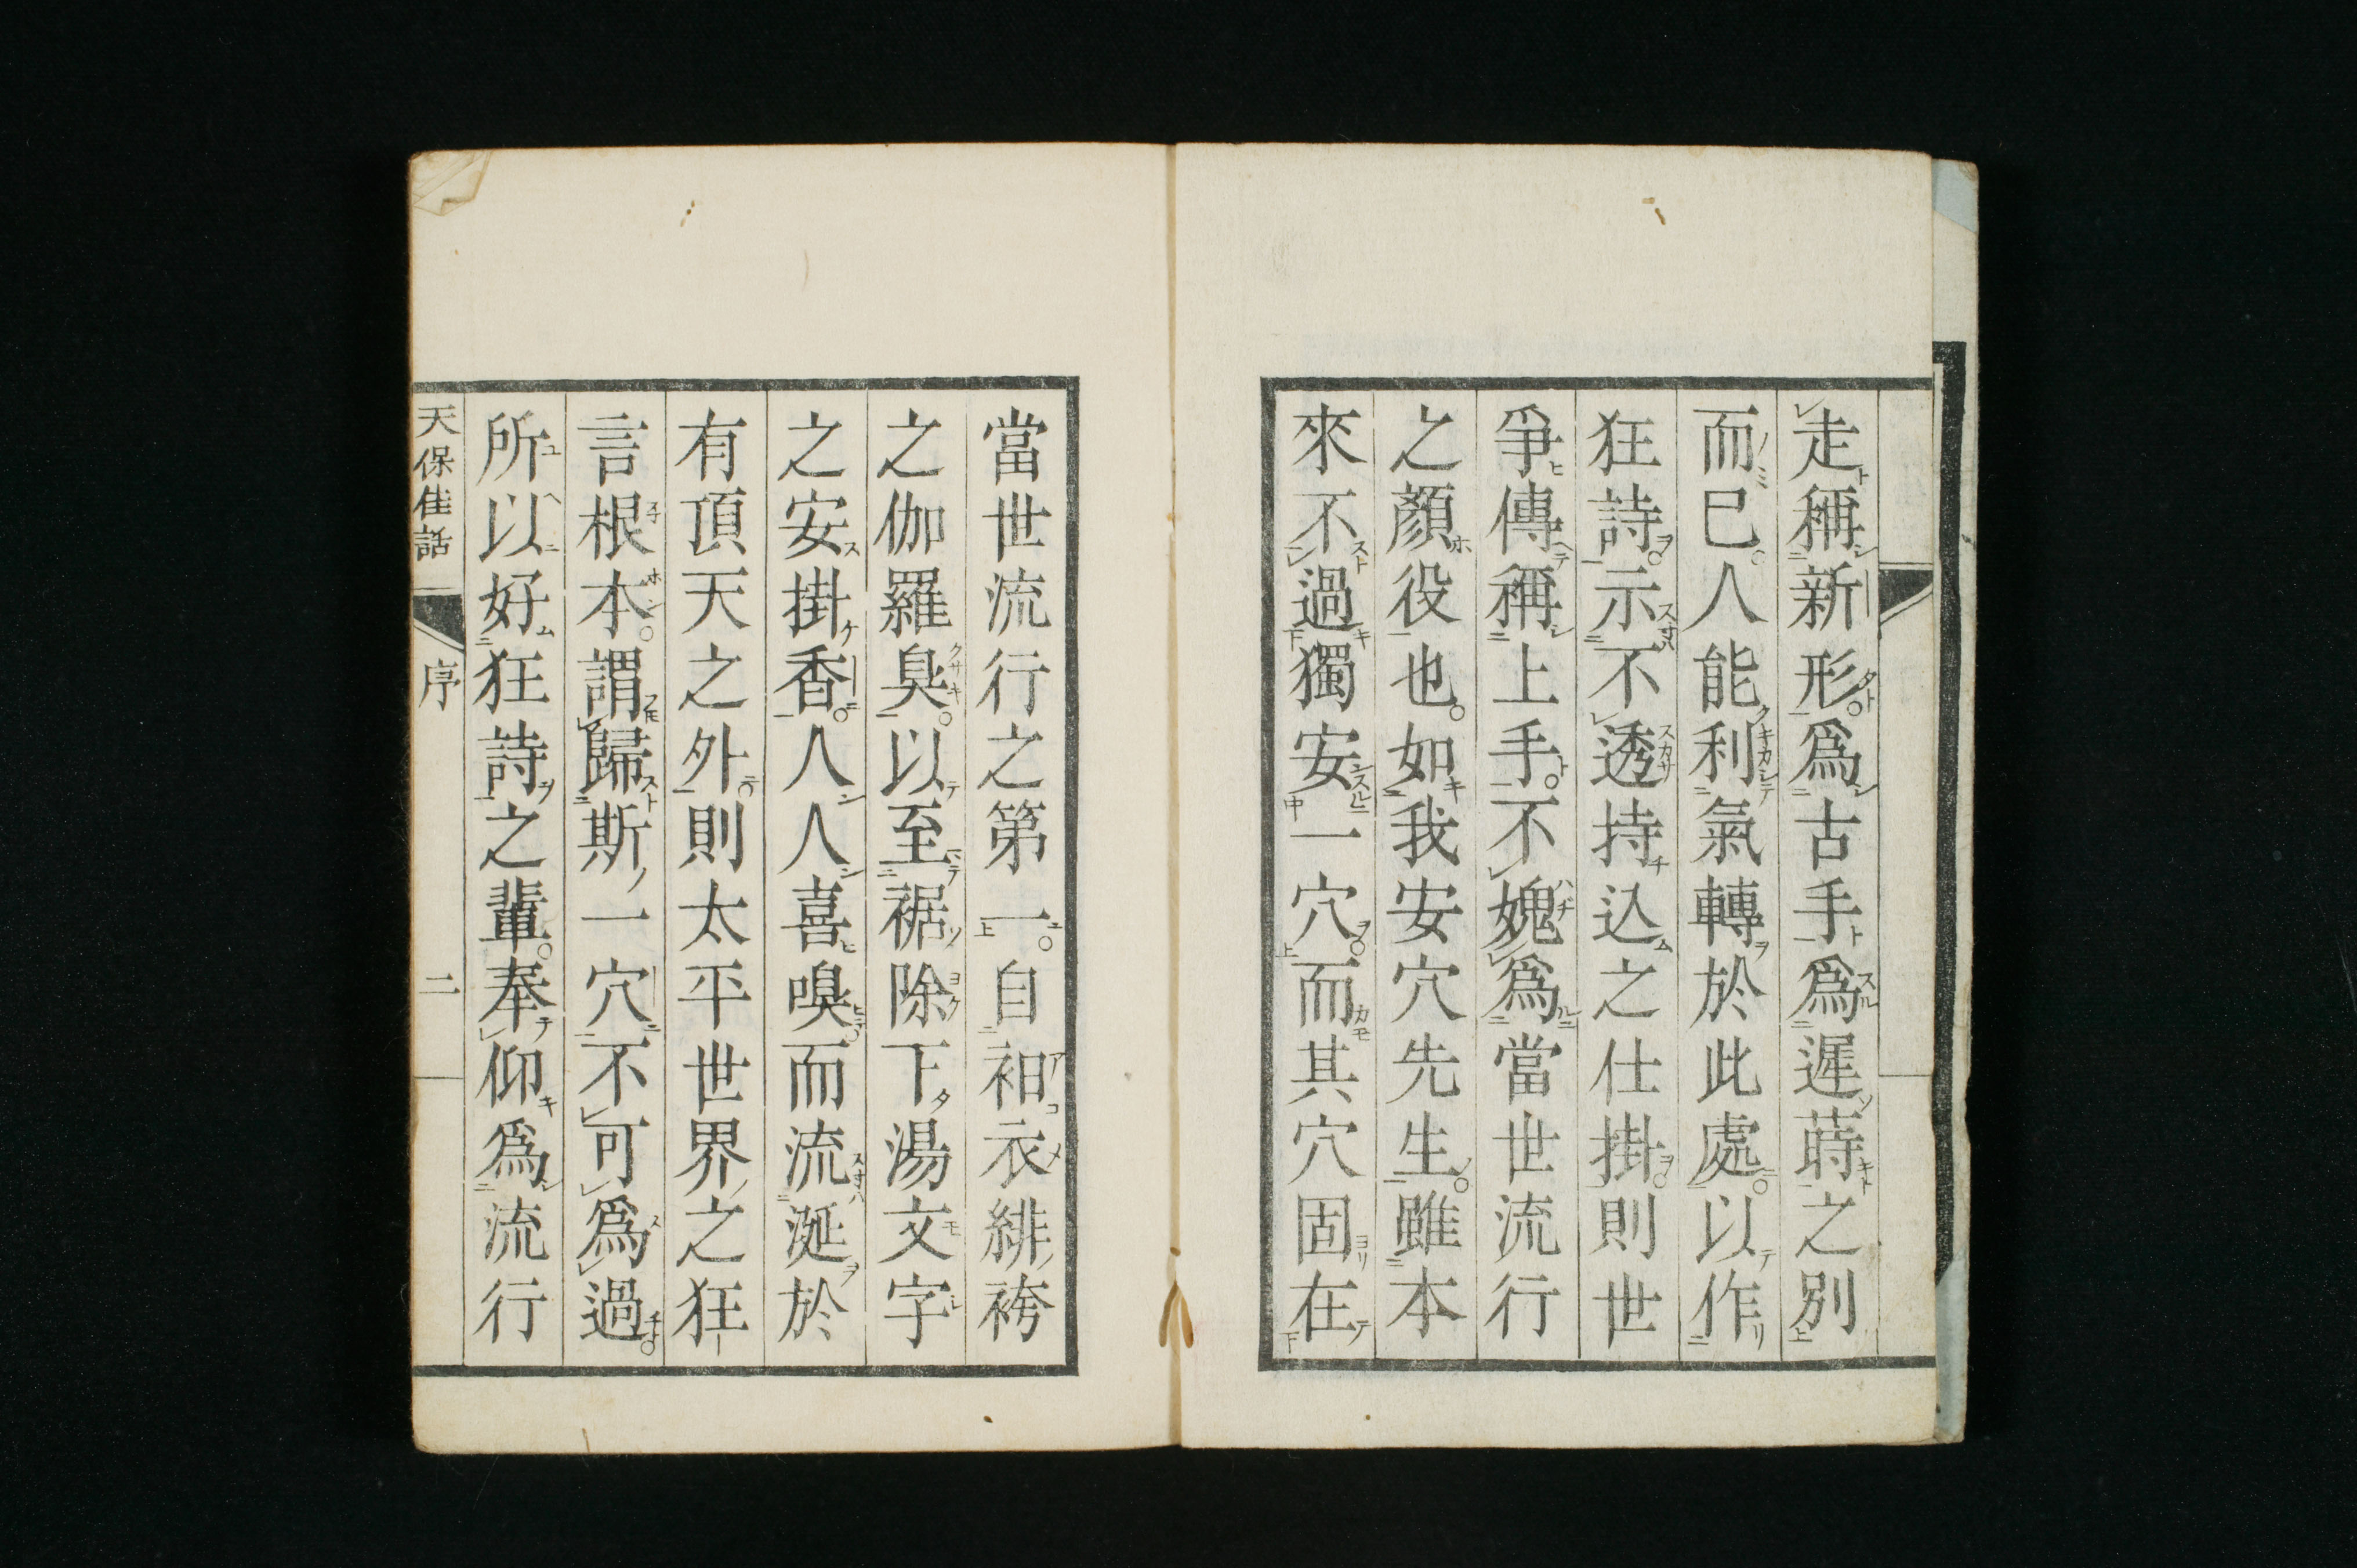 走稱新形爲古手爲遲蒔之別
而巳人能利氣轉於此處以作
狂詩示不透持込之仕掛則世
爭傳稱上手不媿爲當世流行
之顏役也如我安穴先生雖本
來不過獨安一穴而其穴固在
當世流行之第一自衵衣緋袴
之伽羅臭以至裾除下湯文字
之安掛香人人喜嗅而流涎於
有頂天之外則太平世界之狂
言根本謂歸斯一穴不可爲過
所以好狂詩之輩奉仰爲流行
天保佳話 序 二